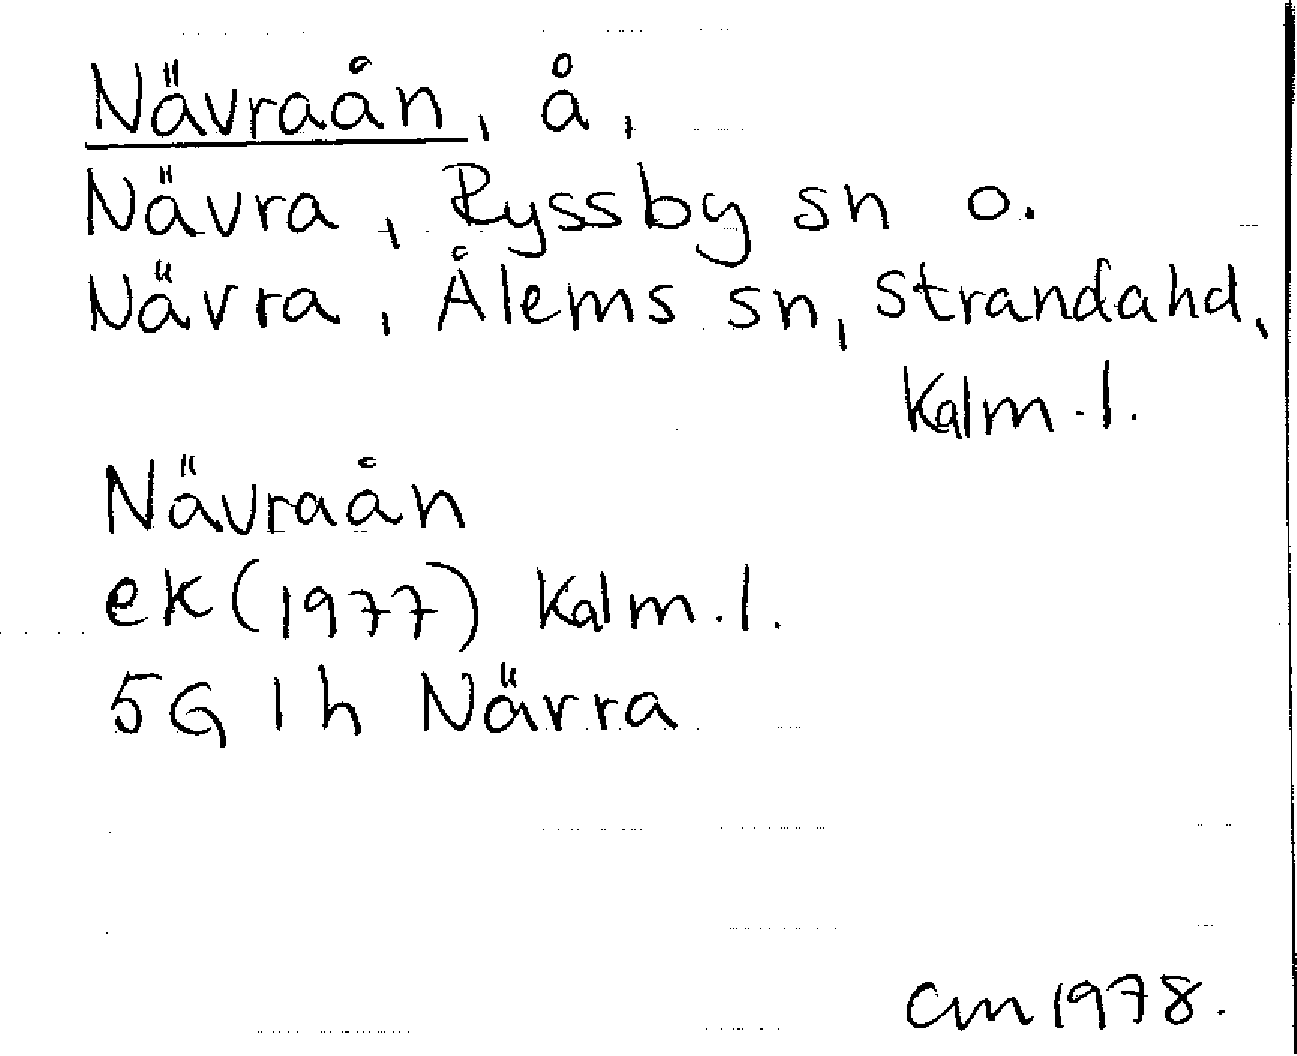 Nävraån, å,
Nävra, Ryssby sn o.
Nävra, Ålems sn, Strandahd,
Kalm.l.
Nävraån
ek (1977) Kalm.l.
5G 1h Nävra
CM 1978.